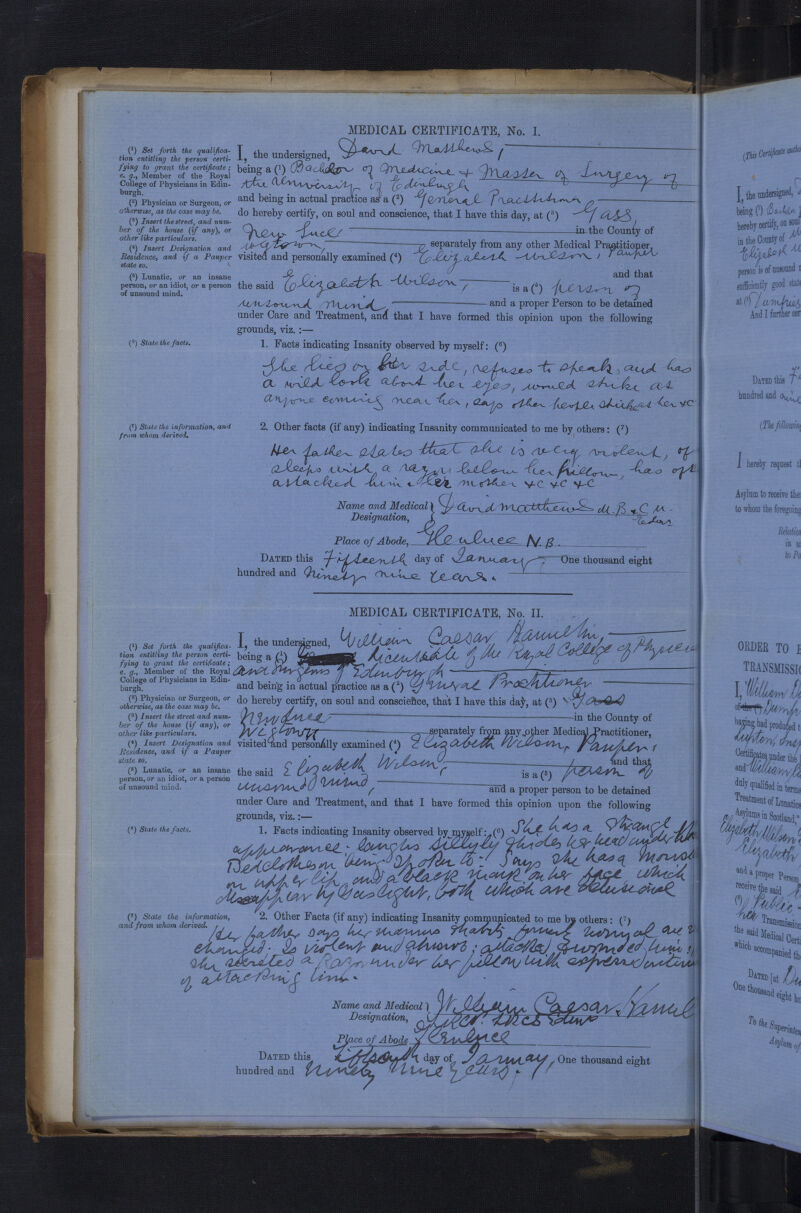 MEDICAL CERTIFICATE, No. I.
(¹) Set forth the qualifica-
tion entitling the person certi-
fying to grant the certificate;
e. g., Member of the Royal
College of Physicians in Edin-
burgh.
(²) Physician or Surgeon, or
otherwise, as the case may be.
(³) Insert the street, and num-
ber of the house (if any), or
other like particulars.
(⁴) Insert Designation and
Residence, and if a Pauper
state so.
(⁵) Lunatic, or an insane
person, or an idiot, or a person
of unsound mind.
I, the undersigned, David Matthews,
being a (¹) Bachelor of Medicine & Master of Surgery of
the University of Edinburgh
and being in actual practice as a (²) General Practitioner
do hereby certify, on soul and conscience, that I have this day, at (³) Gass,
New Luce in the County of
Wigtown, separately from any other Medical Practitioner,
visited and personally examined (⁴) Elizabeth Wilson, Pauper
the said Elizabeth Wilson, is a (⁵) person of and that
unsound mind, and a proper Person to be detained
under Care and Treatment, and that I have formed this opinion upon the following
grounds, viz. :—
(⁶) State the facts.
1. Facts indicating Insanity observed by myself: (⁶)
She lies on her side, refuses to speak, and has
a wild look about her eyes, would strike at
anyone coming near her, says other people strike at her &c
(⁷) State the information, and
from whom derived.
2. Other facts (if any) indicating Insanity communicated to me by others: (⁷)
Her father states that she is very violent, of
sleeps with a razor below her pillow, has oft
attacked him & her mother &c &c &c
Name and Medical Designation, David Matthews M.B. & C.M.
Edin
Place of Abode, Glenluce N.B.
DATED this Fifteenth day of January One thousand eight
hundred and Ninety nine years.
MEDICAL CERTIFICATE, No. II.
(¹) Set forth the qualifica-
tion entitling the person certi-
fying to grant the certificate;
e. g., Member of the Royal
College of Physicians in Edin-
burgh.
(²) Physician or Surgeon, or
otherwise, as the case may be.
(³) Insert the street and num-
ber of the house (if any), or
other like particulars.
(⁴) Insert Designation and
Residence, and if a Pauper
state so.
(⁵) Lunatic, or an insane
person, or an idiot, or a person
of unsound mind.
I, the undersigned, William Caesar Hamilton,
being a (¹) Licentiate of the Royal College of Physicia
and Surgeons of Edinburgh
and being in actual practice as a (²) General Practitioner
do hereby certify, on soul and conscience, that I have this day, at (³) Gass
New Luce in the County of
Wigtown separately from any other Medical Practitioner,
visited and personally examined (⁴) Elizabeth Wilson, Pauper,
the said Elizabeth Wilson, is a (⁵) person of and that
unsound mind, and a proper person to be detained
under Care and Treatment, and that I have formed this opinion upon the following
grounds, viz. :—
(⁶) State the facts.
1. Facts indicating Insanity observed by myself: (⁶) She has a strange
appearance. laughs sillyly & hides her head under the
Bedclothes on being spoken to. Says she has a mous
on upper lip and a black mark on her face which
disappear by Gaslight, both which are delusional
(⁷) State the information,
and from whom derived.
2. Other Facts (if any) indicating Insanity communicated to me by others: (⁷)
Her father says her manners & habits former normal are
changed. Is violent and abusive; attacked & wounded him;
she secreted a Razor under her pillow with express inten
of attacking him.
Name and Medical Designation, William Caesar Hamil
LRCP. LRCS Edin
Place of Abode Glenluce
DATED this day of January, One thousand eight
hundred and Ninety nine years.
(This Certificate
I, the undersigned,
being (¹) Bachelor
hereby certify, on soul
in the County of
Elizabeth
person is of unsound
sufficiently good state
at Dumfries
And I further cer
DATED this
hundred and nine
(The following
I hereby request
Asylum to receive the
to whom the foregoing
ORDER TO
TRANSMISSI
I, William
having had produced t
Certificates under the
and William
duly qualified in terms
Treatment of Lunatics
Asylums in Scotland,"
Elizabeth Wilson
Elizabeth
and a proper Person
receive the said
Public
Transmission
the said Medical Cert
which accompanied th
DATED (at
One thousand eight h
To the Superinten
Asylum of